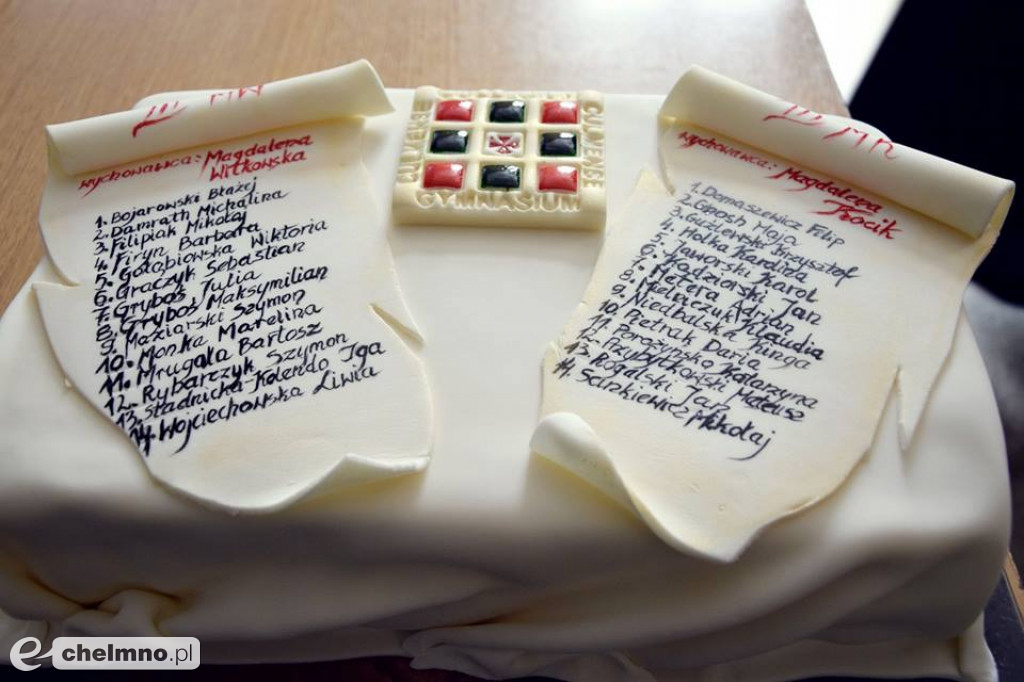 III
wychowawca: Magdalena
Witkowska
1. Bojarowski Błażej
2. Damrath Michalina
3. Filipiak Mikołaj
4. Firyn Barbara
5. Gołąbiowska Wiktoria
6. Graczyk Sebastian
7. Gryboś Julia
8. Gryboś Maksymilian
9. Maziarski Szymon
10. Monka Marelina
11. Mrugała Bartosz
12. Rybarczyk Szymon
13. Stadnicka-Kolendo Iga
14. Wojciechowska Liwia
CULMENSE
GYMNASIUM
III
wychowawca: Magdalena
Trocik
1. Domaszewicz Filip
2. Maja
3. Krzysztof
4. Holka Karolina
5. Jaworski Karol
6. Kaźmiorski Jan
7. Metera Adrian
8. Mielniczuk Klaudia
9. Niedbalska Kinga
10. Pietrak Daria
11. Porożyńska Katarzyna
12. Przybytkowski Mateusz
13. Rogalski Jan
14. Sackiewicz Mikołaj
echelmno.pl